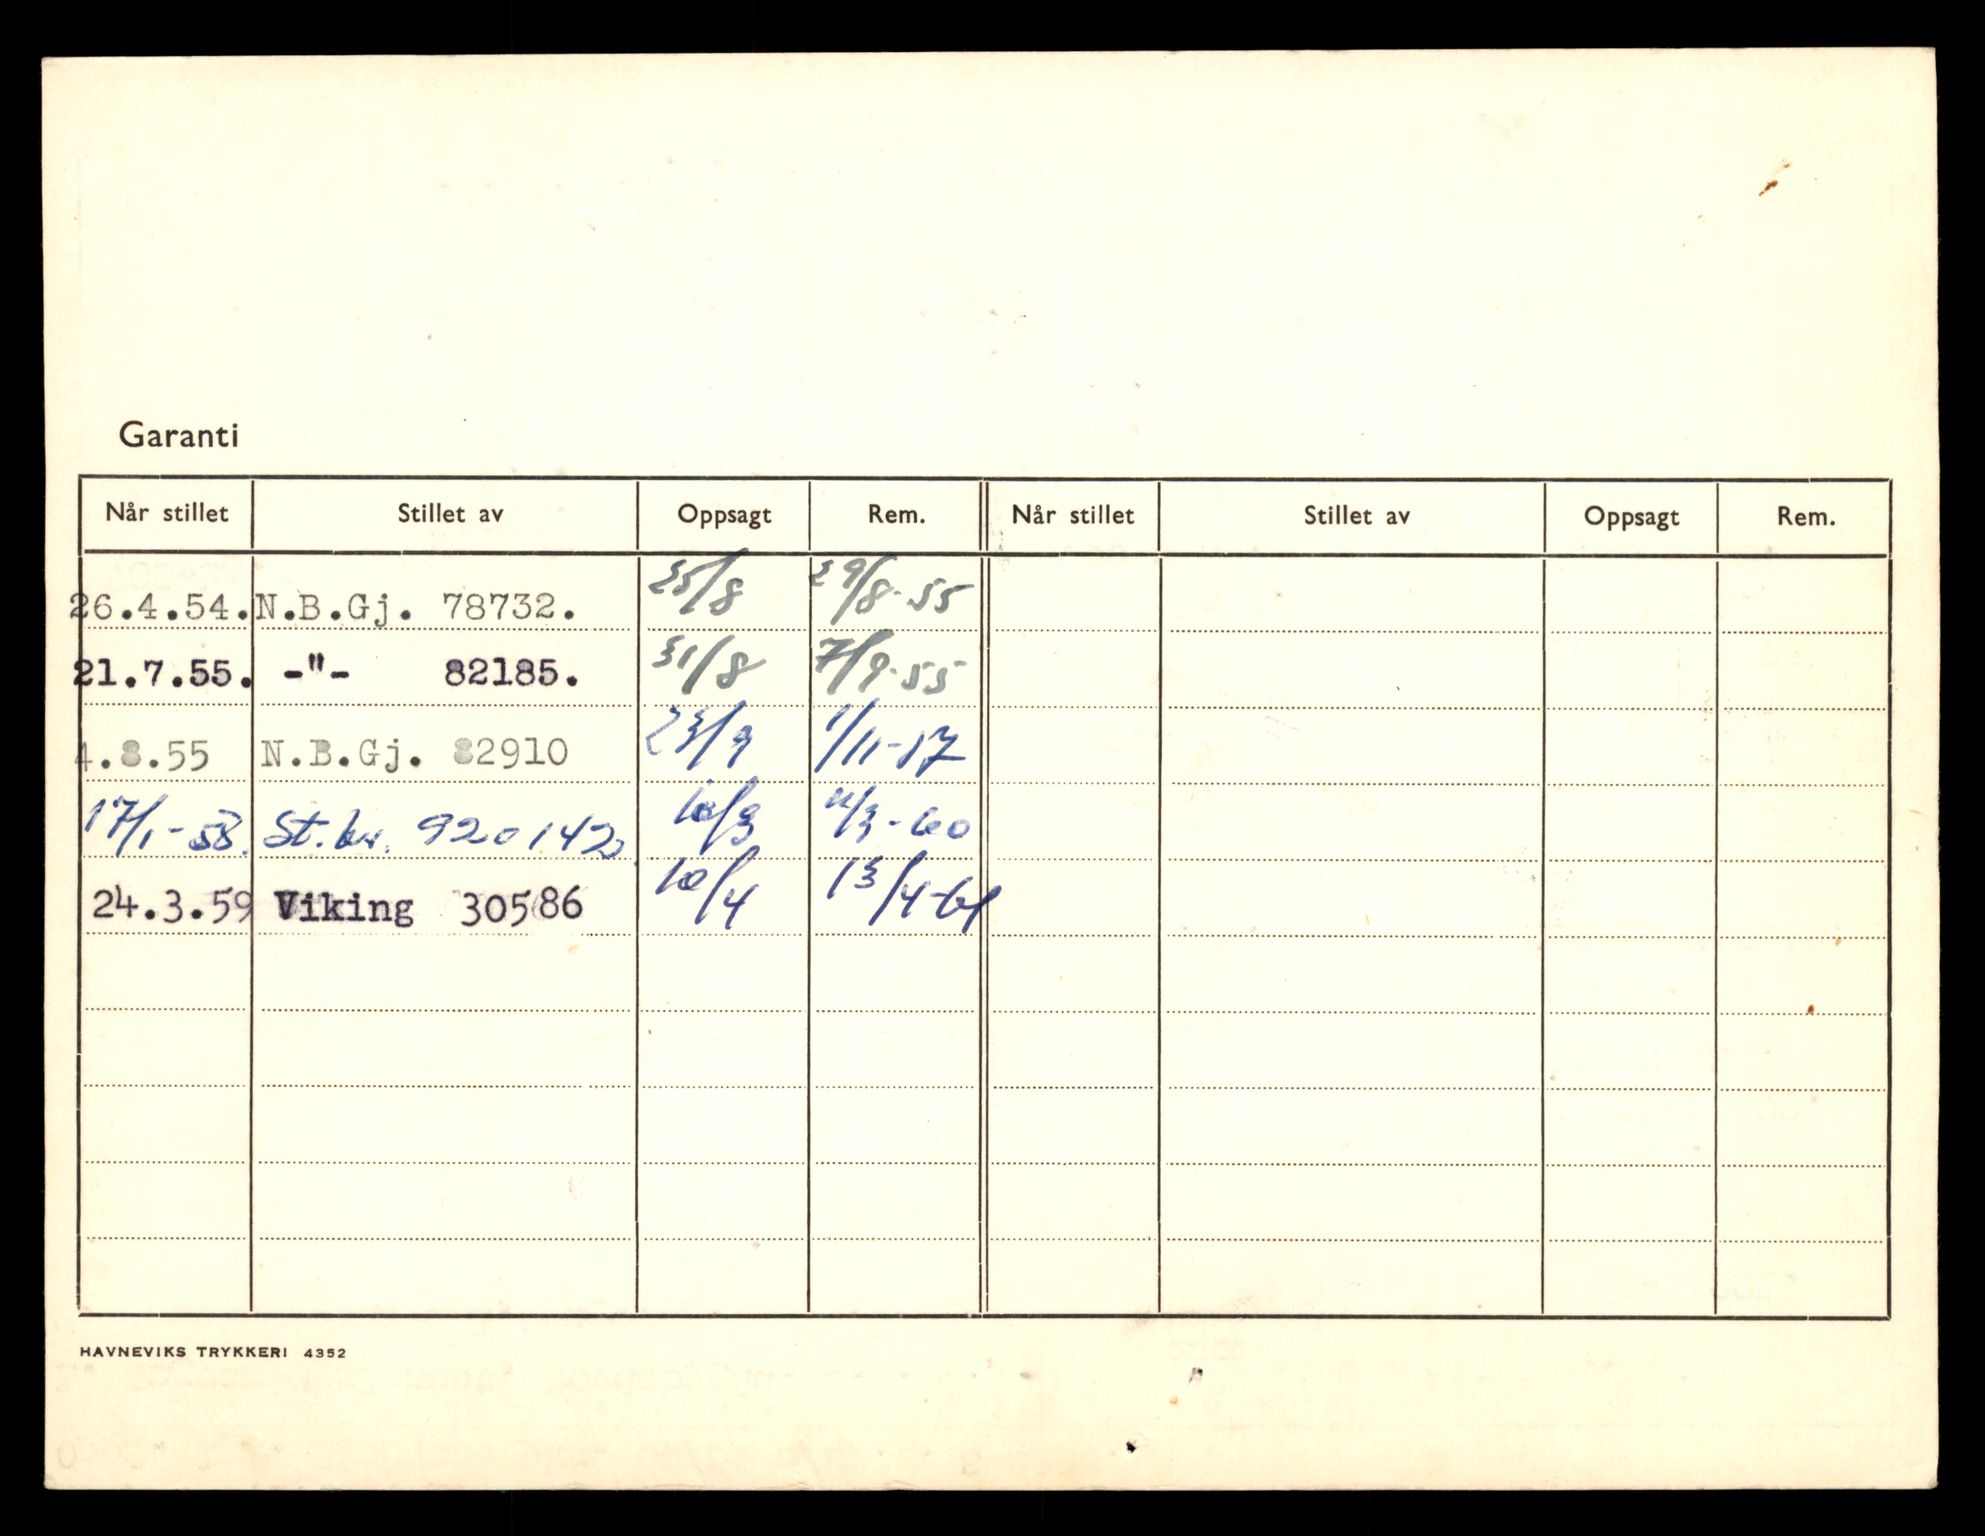 Garanti
Når stillet Stillet av Oppsagt Rem. Når stillet Stillet av Oppsagt Rem.
26.4.54. N.B.Gj. 78732. 25/8 29/8-55
21.7.55. -"- 82185. 31/8 7/9-55
4.8.55 N.B.Gj. 82910 23/9 1/11-57
17/1-58. St.br. 920142. 10/3 11/3-60
24.3.59 Viking 30586 10/4 13/4-61
HAVNEVIKS TRYKKERI 4352